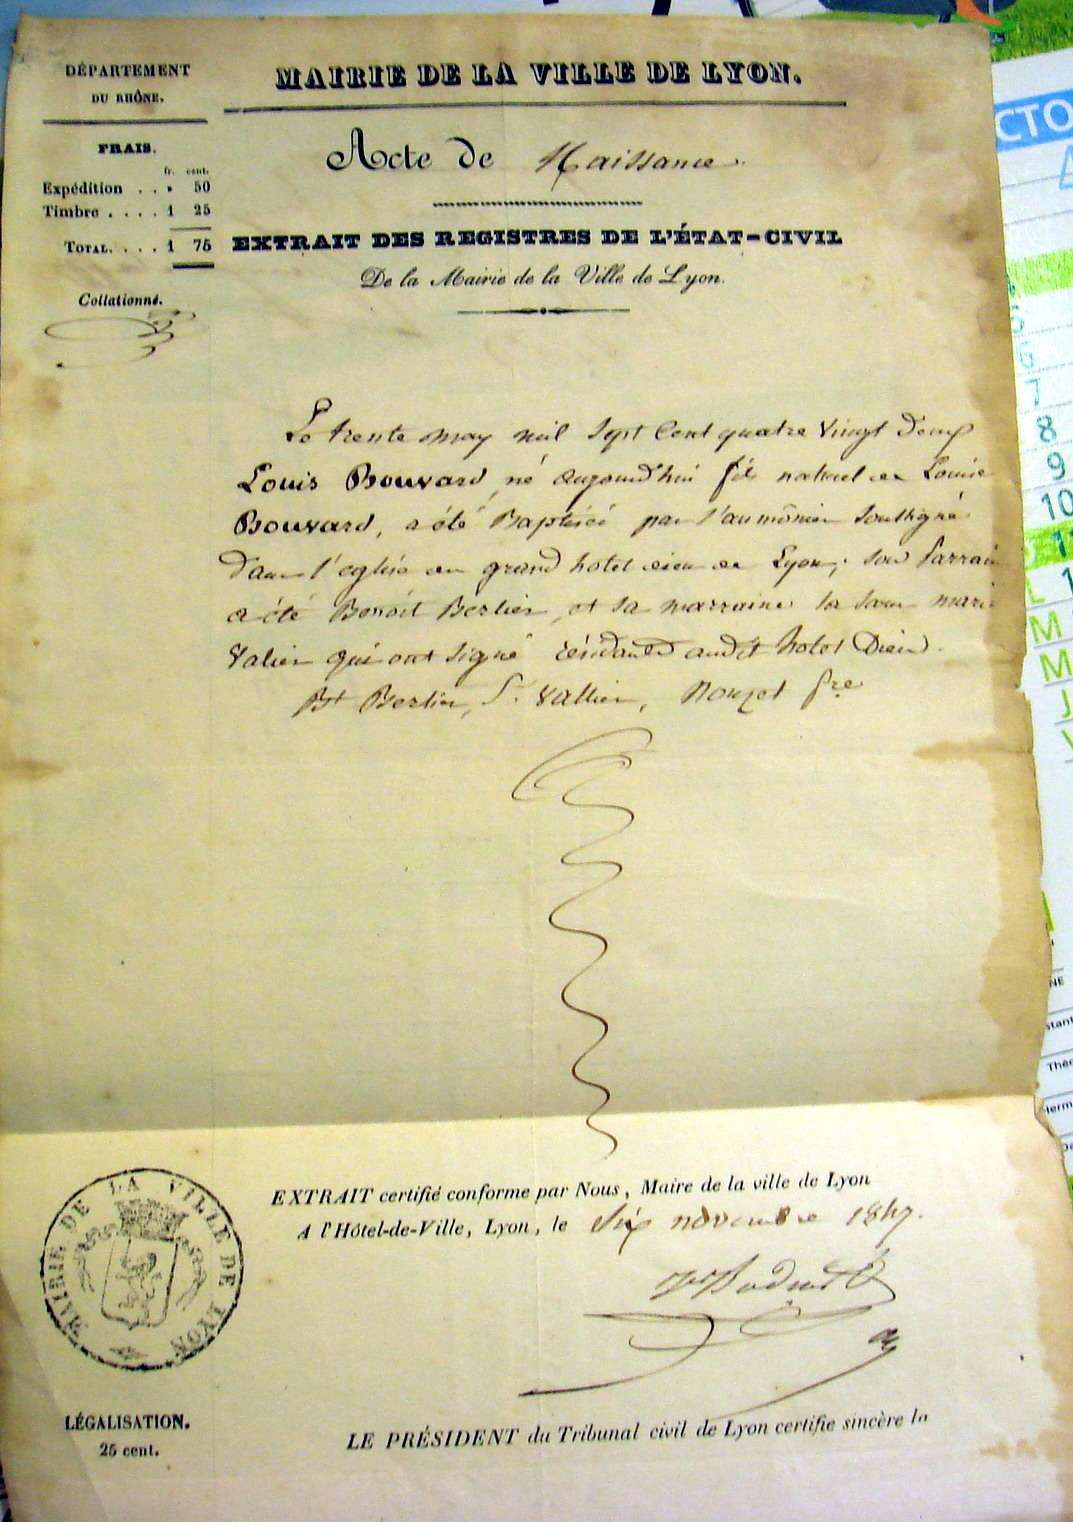 DÉPARTEMENT
DU RHÔNE.
FRAIS.
fr. cent.
Expédition . . » 50
Timbre . . . . 1 25
TOTAL. . . . 1 75
Collationné.
MAIRIE DE LA VILLE DE LYON.
Acte de Naissance.
EXTRAIT DES REGISTRES DE L'ÉTAT-CIVIL
De la Mairie de la Ville de Lyon.
Le trente may mil sept cent quatre vingt deux
Louis Bouvard, né aujourd'hui fils naturel de Louise
Bouvard, a été Baptisé par l'aumônier soussigné
dans l'église du grand hotel dieu de Lyon; son parrain
a été Benoit Berlier, et sa marraine la sœur marie
Valier qui ont signé résidants audit hotel Dieu.
Bt Berlier, S. Vallier, fre
EXTRAIT certifié conforme par Nous, Maire de la ville de Lyon
A l'Hôtel-de-Ville, Lyon, le Six novembre 1847.
MAIRIE DE LA VILLE DE LYON
LÉGALISATION.
25 cent.
LE PRÉSIDENT du Tribunal civil de Lyon certifie sincère la
CTO
6
7
8
9
10
L
M
M
J